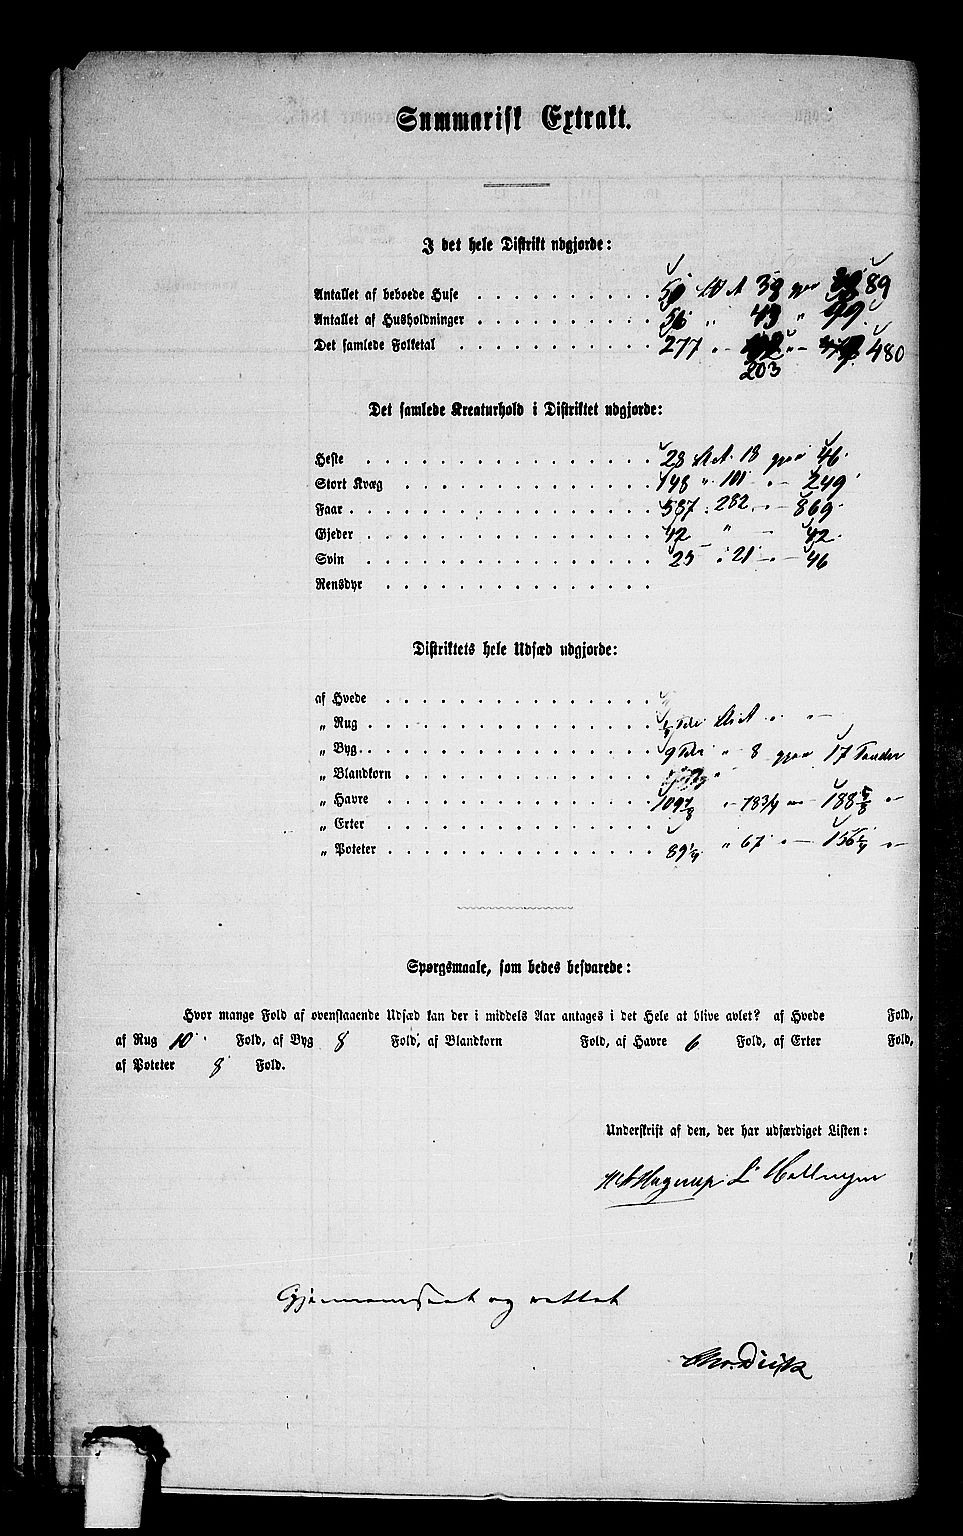 Summarisk Extrakt.
I det hele Distrikt udgjorde:
Antallet af beboede Huse . . . . . . . . . . 50 39 89
Antallet af Husholdninger . . . . . . . . . . 56 „ 43 „ 99
Det samlede Folketal . . . . . . . . . . 277 480
203
Det samlede Kreaturhold i Distriktet udgjorde:
Heste . . . . . . . . . . 28 18 46
Stort Kvæg . . . . . . . . . . 148 „ 101 249
Faar . . . . . . . . . . 587 282 869
Gjeder . . . . . . . . . . 42 „ 42
Svin . . . . . . . . . . 25 21 46
Rensdyr . . . . . . . . . .
Distriktets hele Udsæd udgjorde:
af Hvede . . . . . . . . . .
„ Rug . . . . . . . . . .
„ Byg . . . . . . . . . . 9 „ 8 17 Tønder
„ Blandkorn . . . . . . . . . .
„ Havre . . . . . . . . . . 109 7/8 78 3/4 188 5/8
„ Erter . . . . . . . . . .
„ Poteter . . . . . . . . . . 89 1/4 „ 67 156 1/4
Spørgsmaale, som bedes besvarede:
Hvor mange Fold af ovenstaaende Udsæd kan der i middels Aar antages i det Hele at blive avlet? af Hvede Fold,
af Rug 10 Fold, af Byg 8 Fold, af Blandkorn Fold, af Havre 6 Fold, af Erter Fold,
af Poteter 8 Fold.
Underskrift af den, der har udfærdiget Listen:
Hagerup
Gjennemseet og rettet